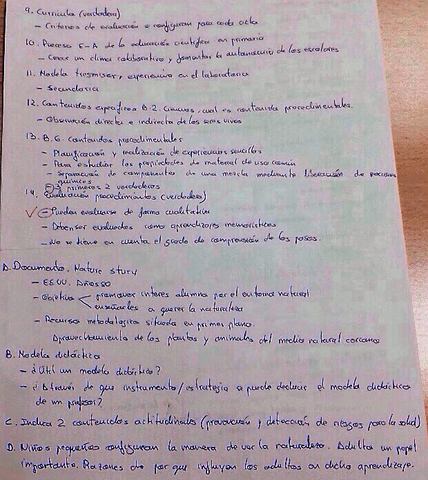 9. Curricula (verdadera)
- Criterios de evaluación se configuran para cada ciclo
10. Proceso E-A de la educación científica en primaria
- Crear un clima colaborativo y fomentar la autonomía de los escolares
11. Modelo transmisor, experiencia en el laboratorio
- Secundaria
12. Contenidos específicos B.2. Ciencias, cual es contenido procedimental.
- Observación directa e indirecta de los seres vivos
13. B.6 contenidos procedimentales
- Planificación y realización de experiencias sencillas
- Para estudiar las propiedades de material de uso común
- Separación de componentes de una mezcla mediante de
químicos
3 primeros 2 verdaderos
14. Evaluación procedimientos (verdadera)
- Pueden evaluarse de forma cualitativa
- Deben ser evaluados como aprendizajes memorísticos
- No se tiene en cuenta el grado de comprensión de los pasos.
A. Documento. Nature study
- EEUU.
- Objetivo promover interés alumno por el entorno natural
enseñarles a querer la naturaleza
- Recurso metodológico situado en primer plano.
Aprovechamiento de las plantas y animales del medio natural cercano
B. Modelo didáctico
- ¿Útil un modelo didáctico?
- ¿A través de que instrumento/estrategia se puede deducir el modelo didáctico
de un profesor?
C. Indica 2 contenidos actitudinales (prevención y detección de riesgos para la salud)
D. Niños pequeños configuran la manera de ver la naturaleza. Adultos un papel
importante. Razones de por que influyen los adultos en dicho aprendizaje.